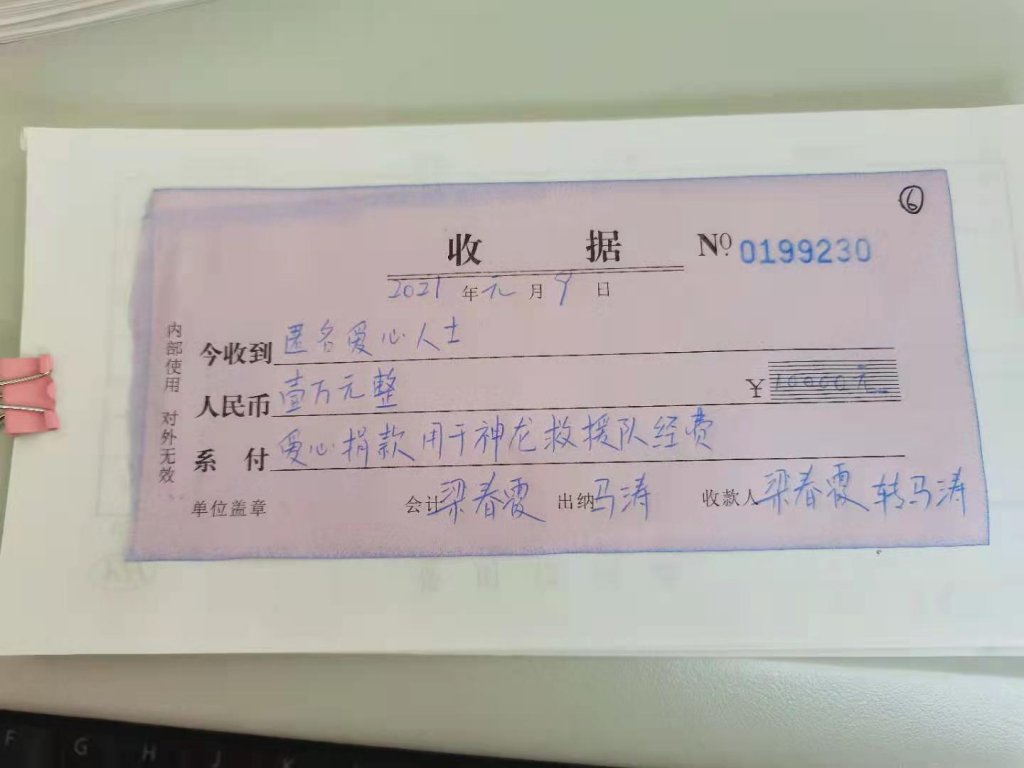 ⑥
收 据 Nº 0199230
2021 年 元 月 9 日
内部使用 对外无效
今收到 匿名爱心人士
人民币 壹万元整 ¥ 10000元
系 付 爱心捐款用于神龙救援队经费
单位盖章 会计 梁春霞 出纳 马涛 收款人 梁春霞转马涛
F G H J K